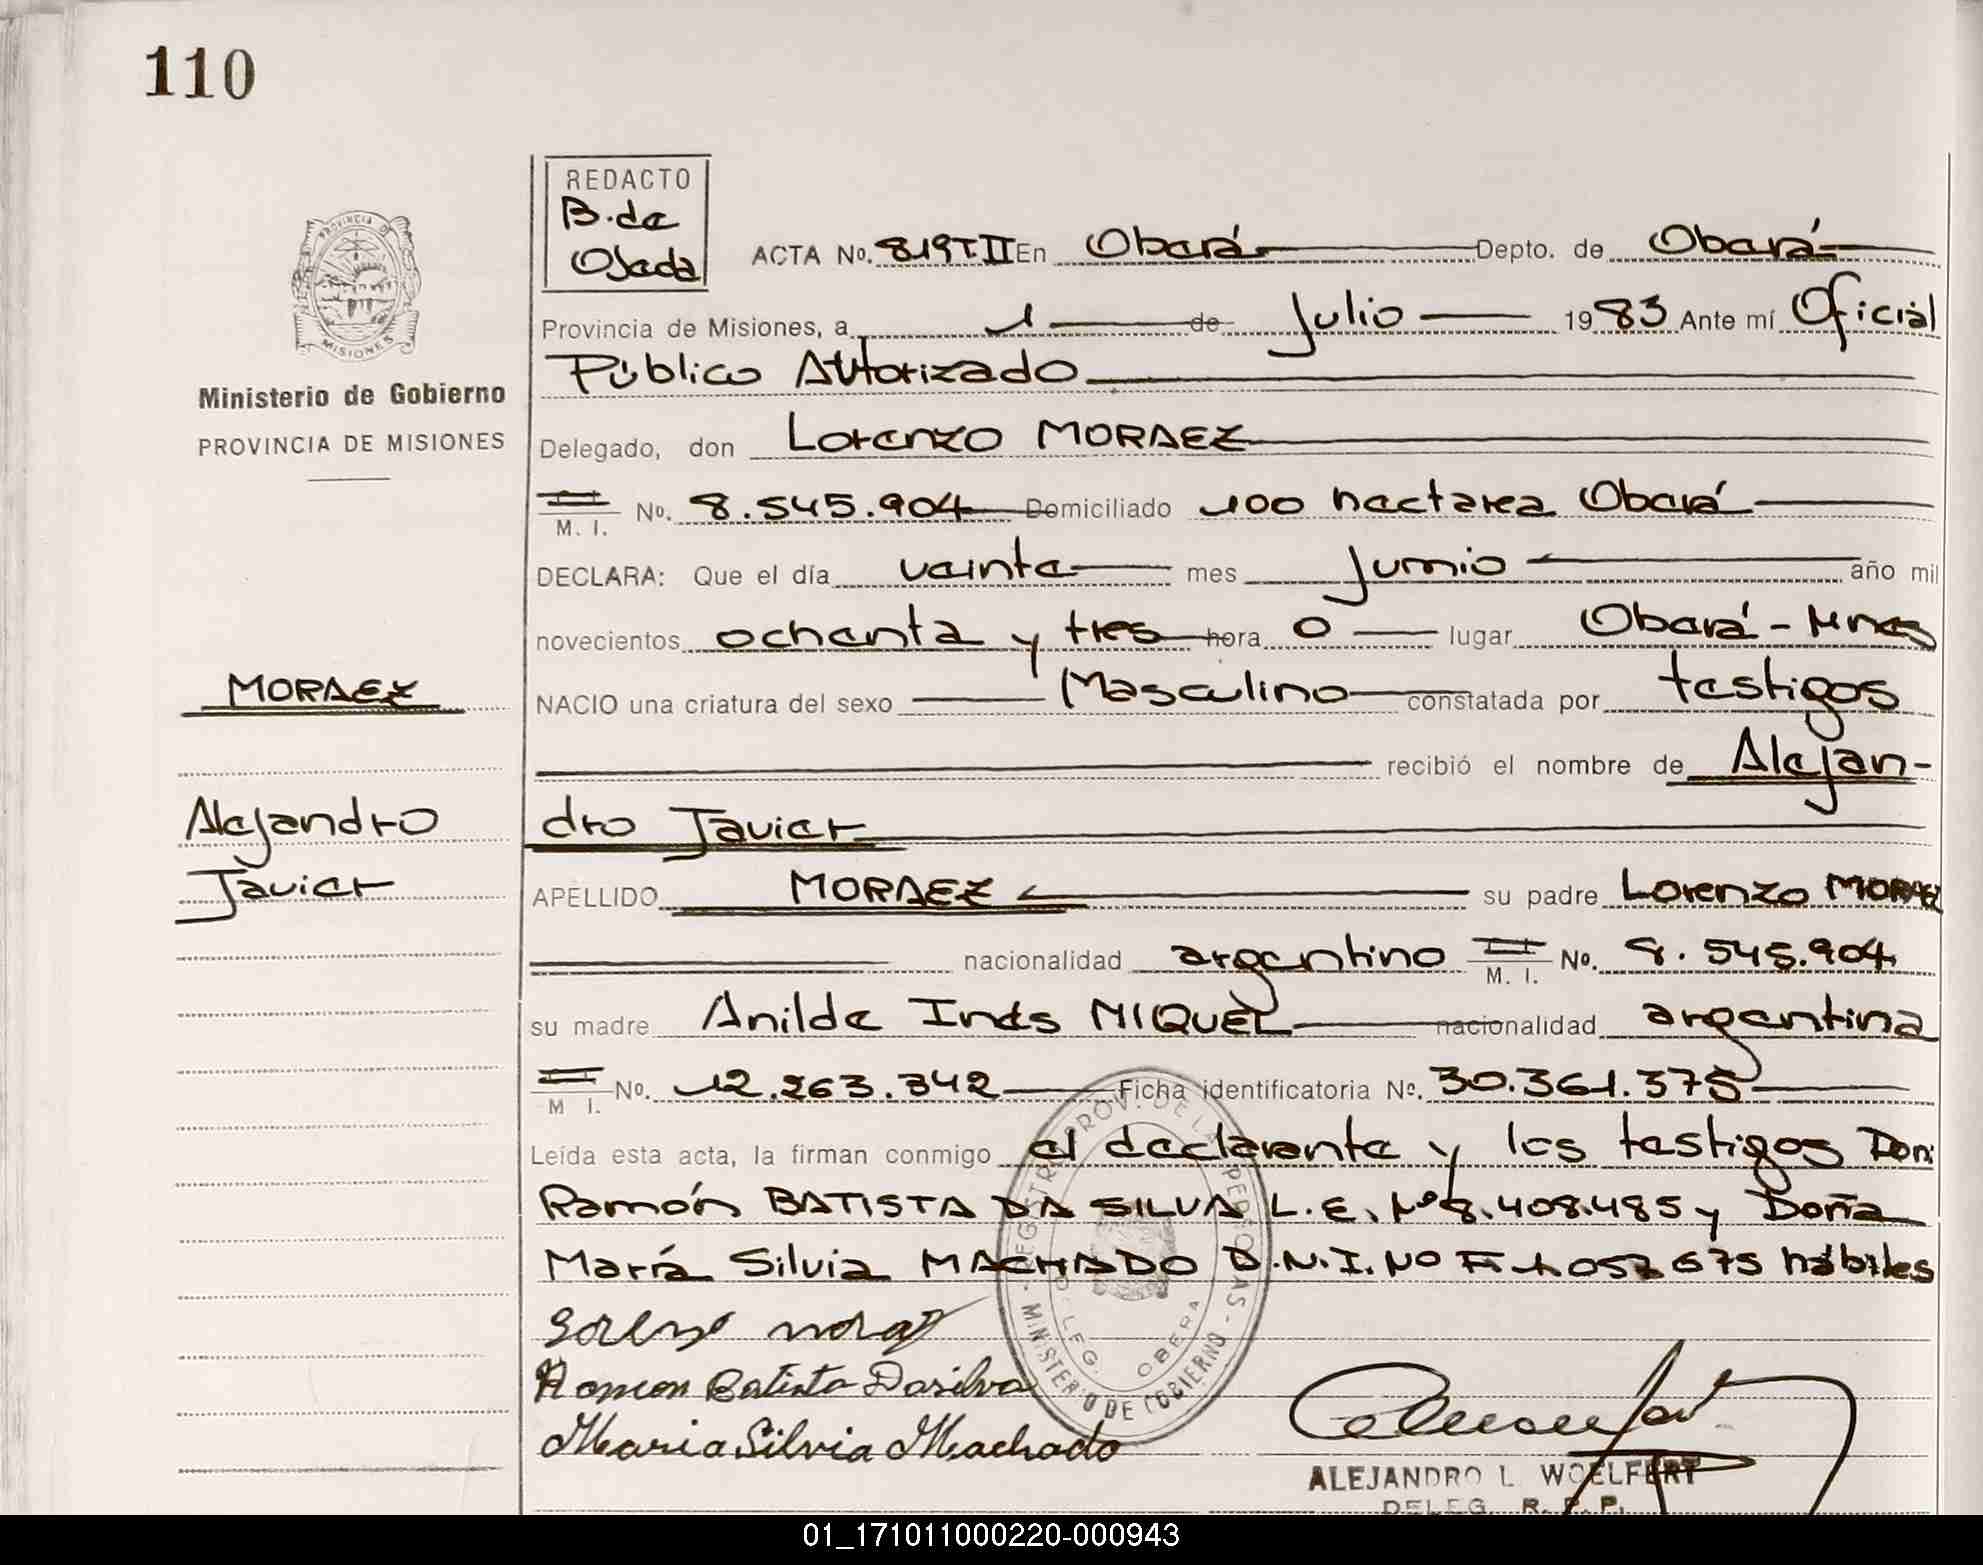 110
REDACTO
B. de
Ojeda
ACTA No. 819 T. II En Oberá Depto. de Oberá
Provincia de Misiones, a 1 de Julio 1983 Ante mí Oficial
Público Autorizado
Ministerio de Gobierno
PROVINCIA DE MISIONES
Delegado, don Lorenzo MORAEZ
M. I. No. 8.545.904 Domiciliado 100 hectarea Oberá
DECLARA: Que el día veinte mes Junio año mil
novecientos ochenta y tres hora 0 lugar Oberá - Mnes
MORAEZ
NACIO una criatura del sexo Masculino constatada por testigos
recibió el nombre de Alejan-
Alejandro
dro Javier
Javier
APELLIDO MORAEZ su padre Lorenzo MORAEZ
nacionalidad argentino M. I. No. 8.545.904
su madre Anilda Inés MIQUEL nacionalidad argentina
M I. No. 12.263.342 Ficha identificatoria No. 30.361.375
Leída esta acta, la firman conmigo el declarante y los testigos Don
Ramón BATISTA DA SILVA L.E. Nº 8.408.485 y Doña
María Silvia MACHADO D.N.I. No F 1 052 675 hábiles
Ramon Batista Dasilva
Maria Silvia Machado
REGISTRO PROV. DE LAS PERSONAS - MINISTERIO DE GOBIERNO -
DELEG. OBERA
PROVINCIA DE
MISIONES
ALEJANDRO L WOELFERT
DELEG. R. P. P.
01_171011000220-000943